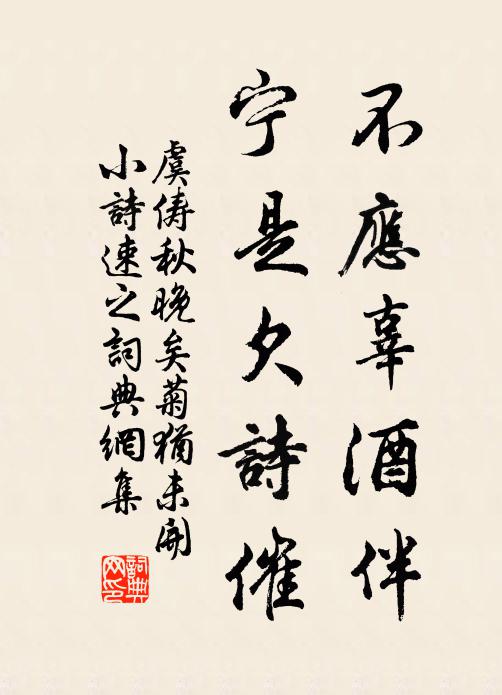 不應辜酒伴
宁是欠詩催
虞俦秋晚矣菊猶未開
小詩速之詞典網集
詞典
网印